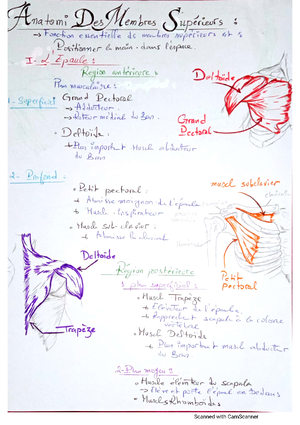 Anatomi Des Membres Supérieurs :
→ Fonction essentielle de membre supérieurs est :
Positionner la main dans l'espace
I - L'Épaule :
Région antérieure :
Plan musculaire :
1 - Superficiel
Grand Pectoral
→ Adducteur
→ Rotateur médial du Bras.
• Deltoïde.
→ Plus important Muscl abducteur
du Bras
Deltoïde
Grand
Pectoral
2 - Profond :
• Petit pectoral :
→ Abaisse moignon de l'épaule
→ Muscle inspirateur
• Muscl sub-clavier :
→ Abaisse la clavicule
muscl subclavier
Petit
pectoral
Deltoïde
Trapèze
Région postérieure
1 plan superficiel :
• Muscl Trapèze
→ Élévateur de l'épaule
→ Rapproche scapula à la colonne
vertébrale
• Muscl Deltoïde
→ Plus important muscl abducteur
du Bras
2 - Plan moyen :
• Muscle élévateur du scapula
→ élève et porte l'épaul en dedans
• Muscles Rhomboïdes
Scanned with CamScanner